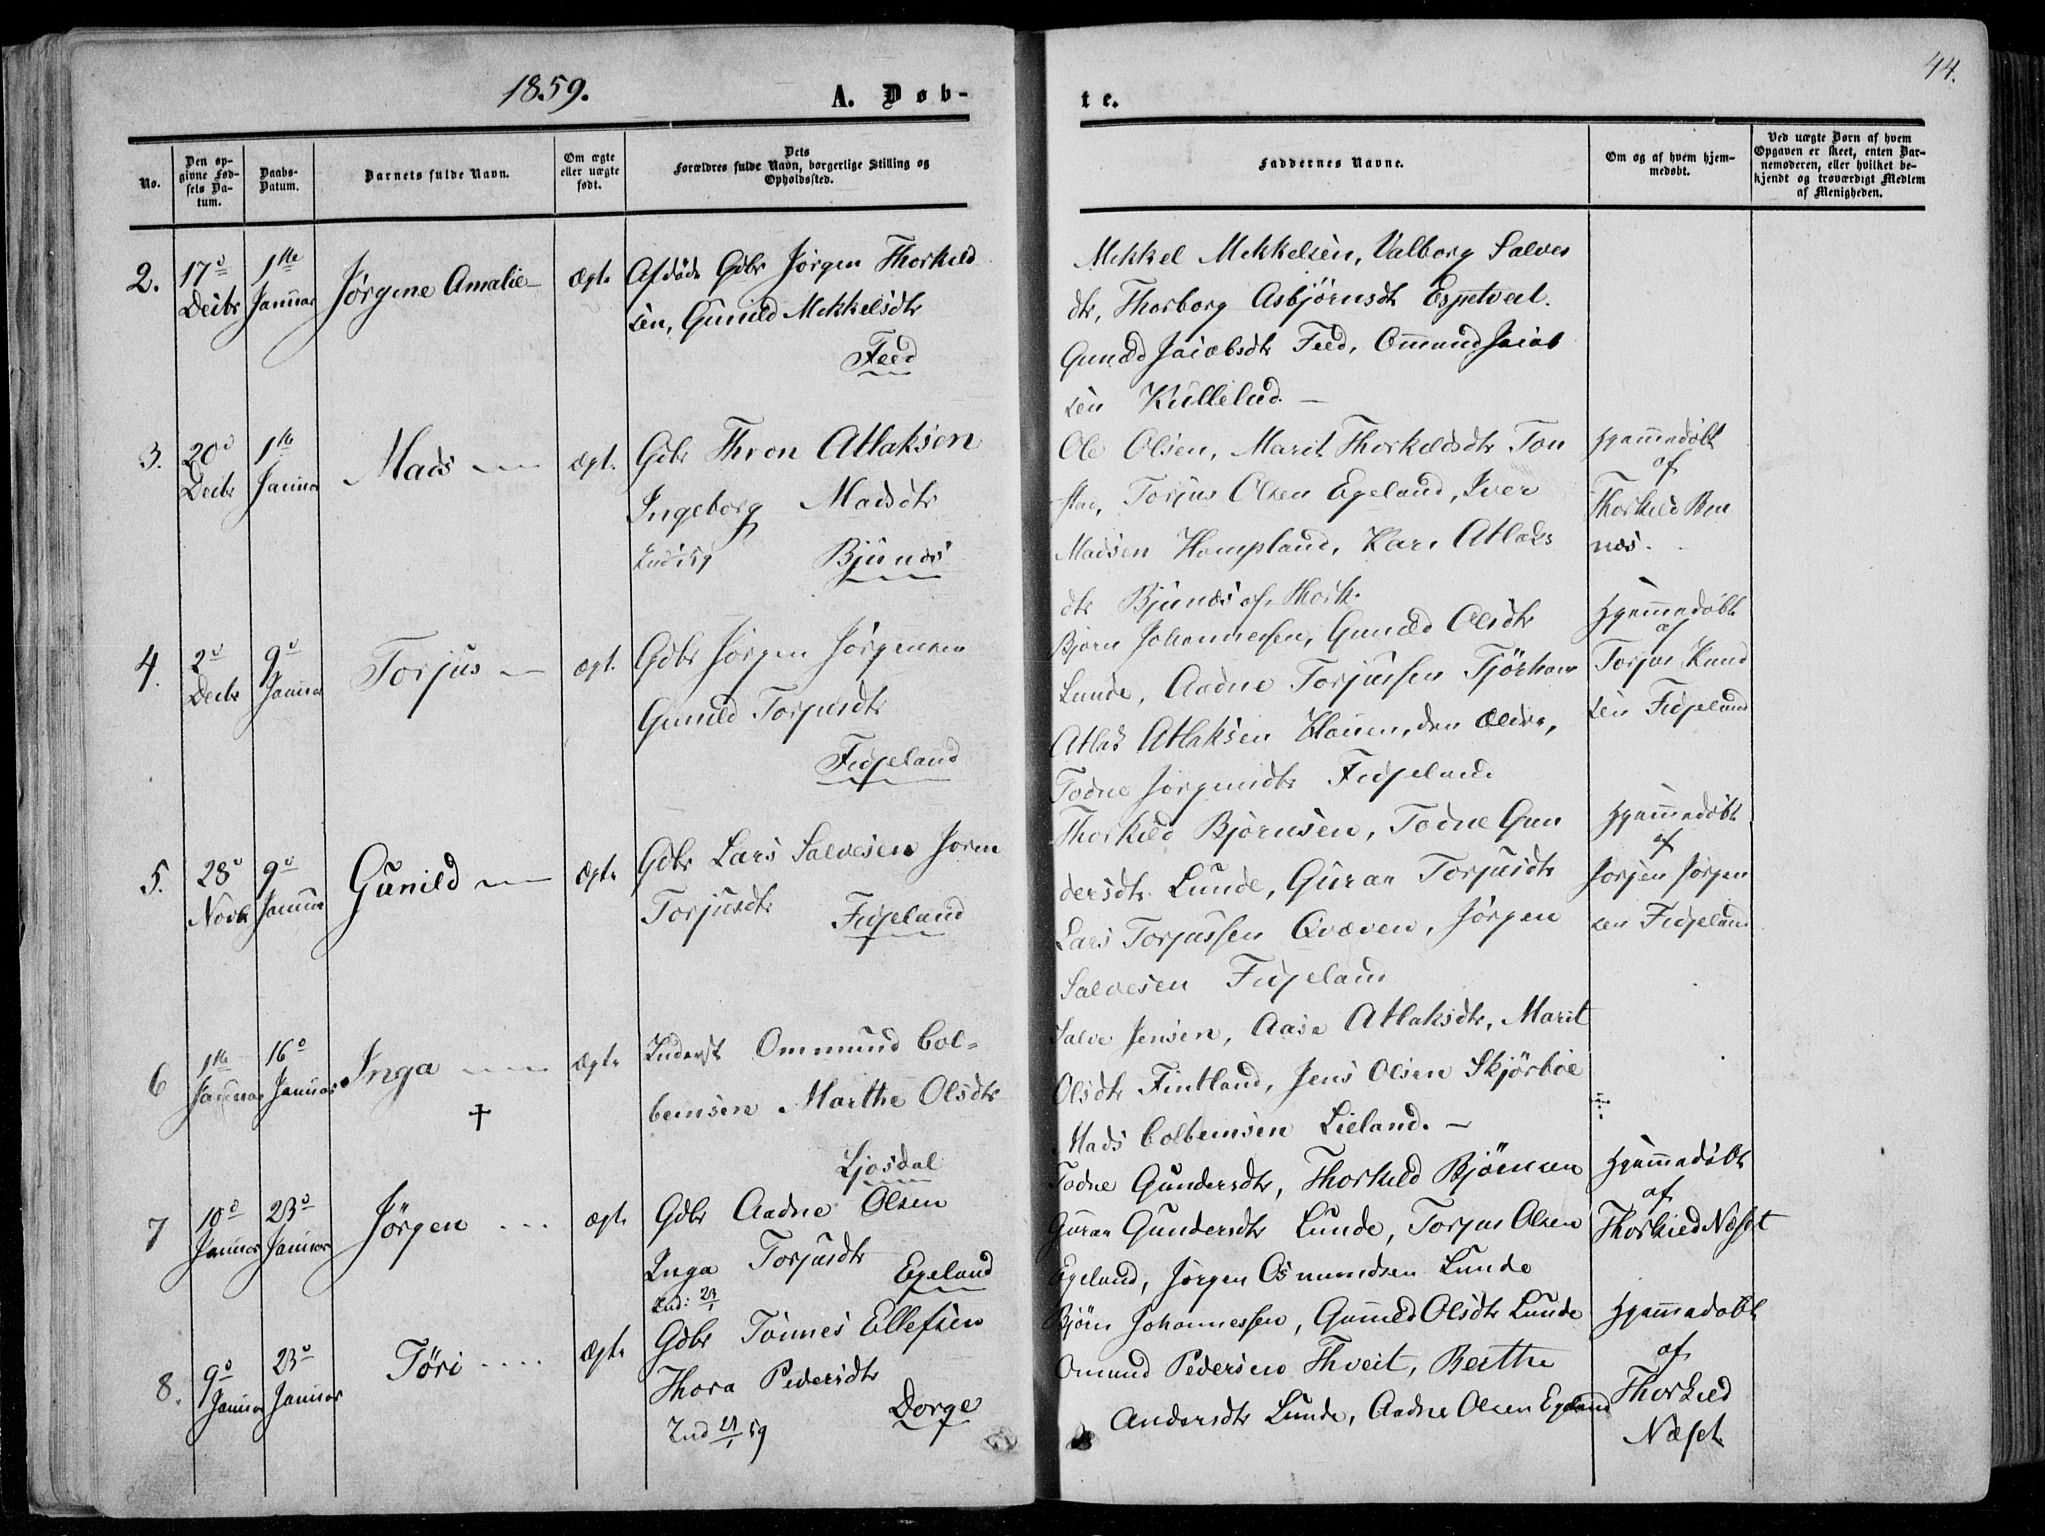 1859.
A. Døb-
te.
44.
No.
Den opgivne Fødsels Datum.
Daabs-Datum.
Barnets fulde Navn.
Om ægte eller uægte født.
Dets Forældres fulde Navn, borgerlige Stilling og Opholdssted.
Faddernes Navne.
Om og af hvem hjemmedøbt.
Ved uægte Børn af hvem Opgaven er skeet, enten Barnemoderen, eller hvilket bekjendt og troværdigt Medlem af Menigheden.
2. 17d Decbr 1ste Januar Jørgine Amalie ægte
Afdøde Gdbr Jørgen Thorkild
sen, Gunild Mekkelsdtr
Feed
Mekkel Mekkelsen, Valborg Salves
dtr, Thorborg Asbjørnsdtr Espetveit.
Gunild Jacobsdtr Feed, Ommund Jacob
sen Kullelid.
3. 20d Decbr 1ste Januar Mads ægt.
Gdbr Thron Atlaksen
Ingeborg Madsdtr
Ind 59 Bjunes
Ole Olsen, Marit Thorkildsdtr Ton
stad, Torjus Olsen Egeland, Iver
Madsen Hompland, Kari Atlaks
dtr Bjunes af Thork.
Hjemmedøbt
af
Thorkild Ben
næs.
4. 2d Decbr 9d Januar Torjus ægt.
Gdbr Jørgen Jørgensen
Gunild Torjusdtr
Fidjeland
Bjørn Johannessen, Gunild Olsdtr
Lunde, Aadne Torjussen Tjørhom
Atlak Atlaksen Hauen, den Ældre,
Todne Jørgensdtr Fidjeland
Hjemmedøbt
af
Torjus Knud
sen Fidjeland
5. 28d Novbr 9d Januar Gunild ægte
Gdbr Lars Salvesen Joren
Torjusdtr Fidjeland
Thorkild Bjørnsen, Todne Gun
dersdtr Lunde, Guran Torjusdtr
Lars Torjussen Qvæven, Jørgen
Salvesen Fidjeland
Hjemmedøbt
af
Jørgen Jørgen
sen Fidjeland
6 1ste Januar 16d Januar Inga † ægte
Inderst Ommund Col-
bensen Marthe Olsdtr
Ljosdal
Salve Jensen, Aase Atlaksdtr, Marit
Olsdtr Fintland, Jens Olsen Skjørboe
Mads Colbensen Lieland.
7 10d Januar 23d Januar Jørgen ægte
Gdbr Aadne Olsen
Inga Torjusdtr
Egeland
Ind: 23/1
Todne Gundersdtr, Thorkild Bjørnsen
Guran Gundersdtr Lunde, Torjus Olsen
Egeland, Jørgen Osmundsen Lunde
Hjemmedøbt
af
Thorkild Næset
8. 9d Januar 23d Januar Tøri ægte
Gdbr Tønnes Ellefsen
Thora Pedersdtr
Dorge
Ind 23/1 59
Bjørn Johannessen, Gunild Olsdtr Lunde
Omund Pedersen Thveit, Berthe
Andersdtr Lunde, Aadne Olsen Egeland
Hjemmedøbt
af
Thorkild
Næset